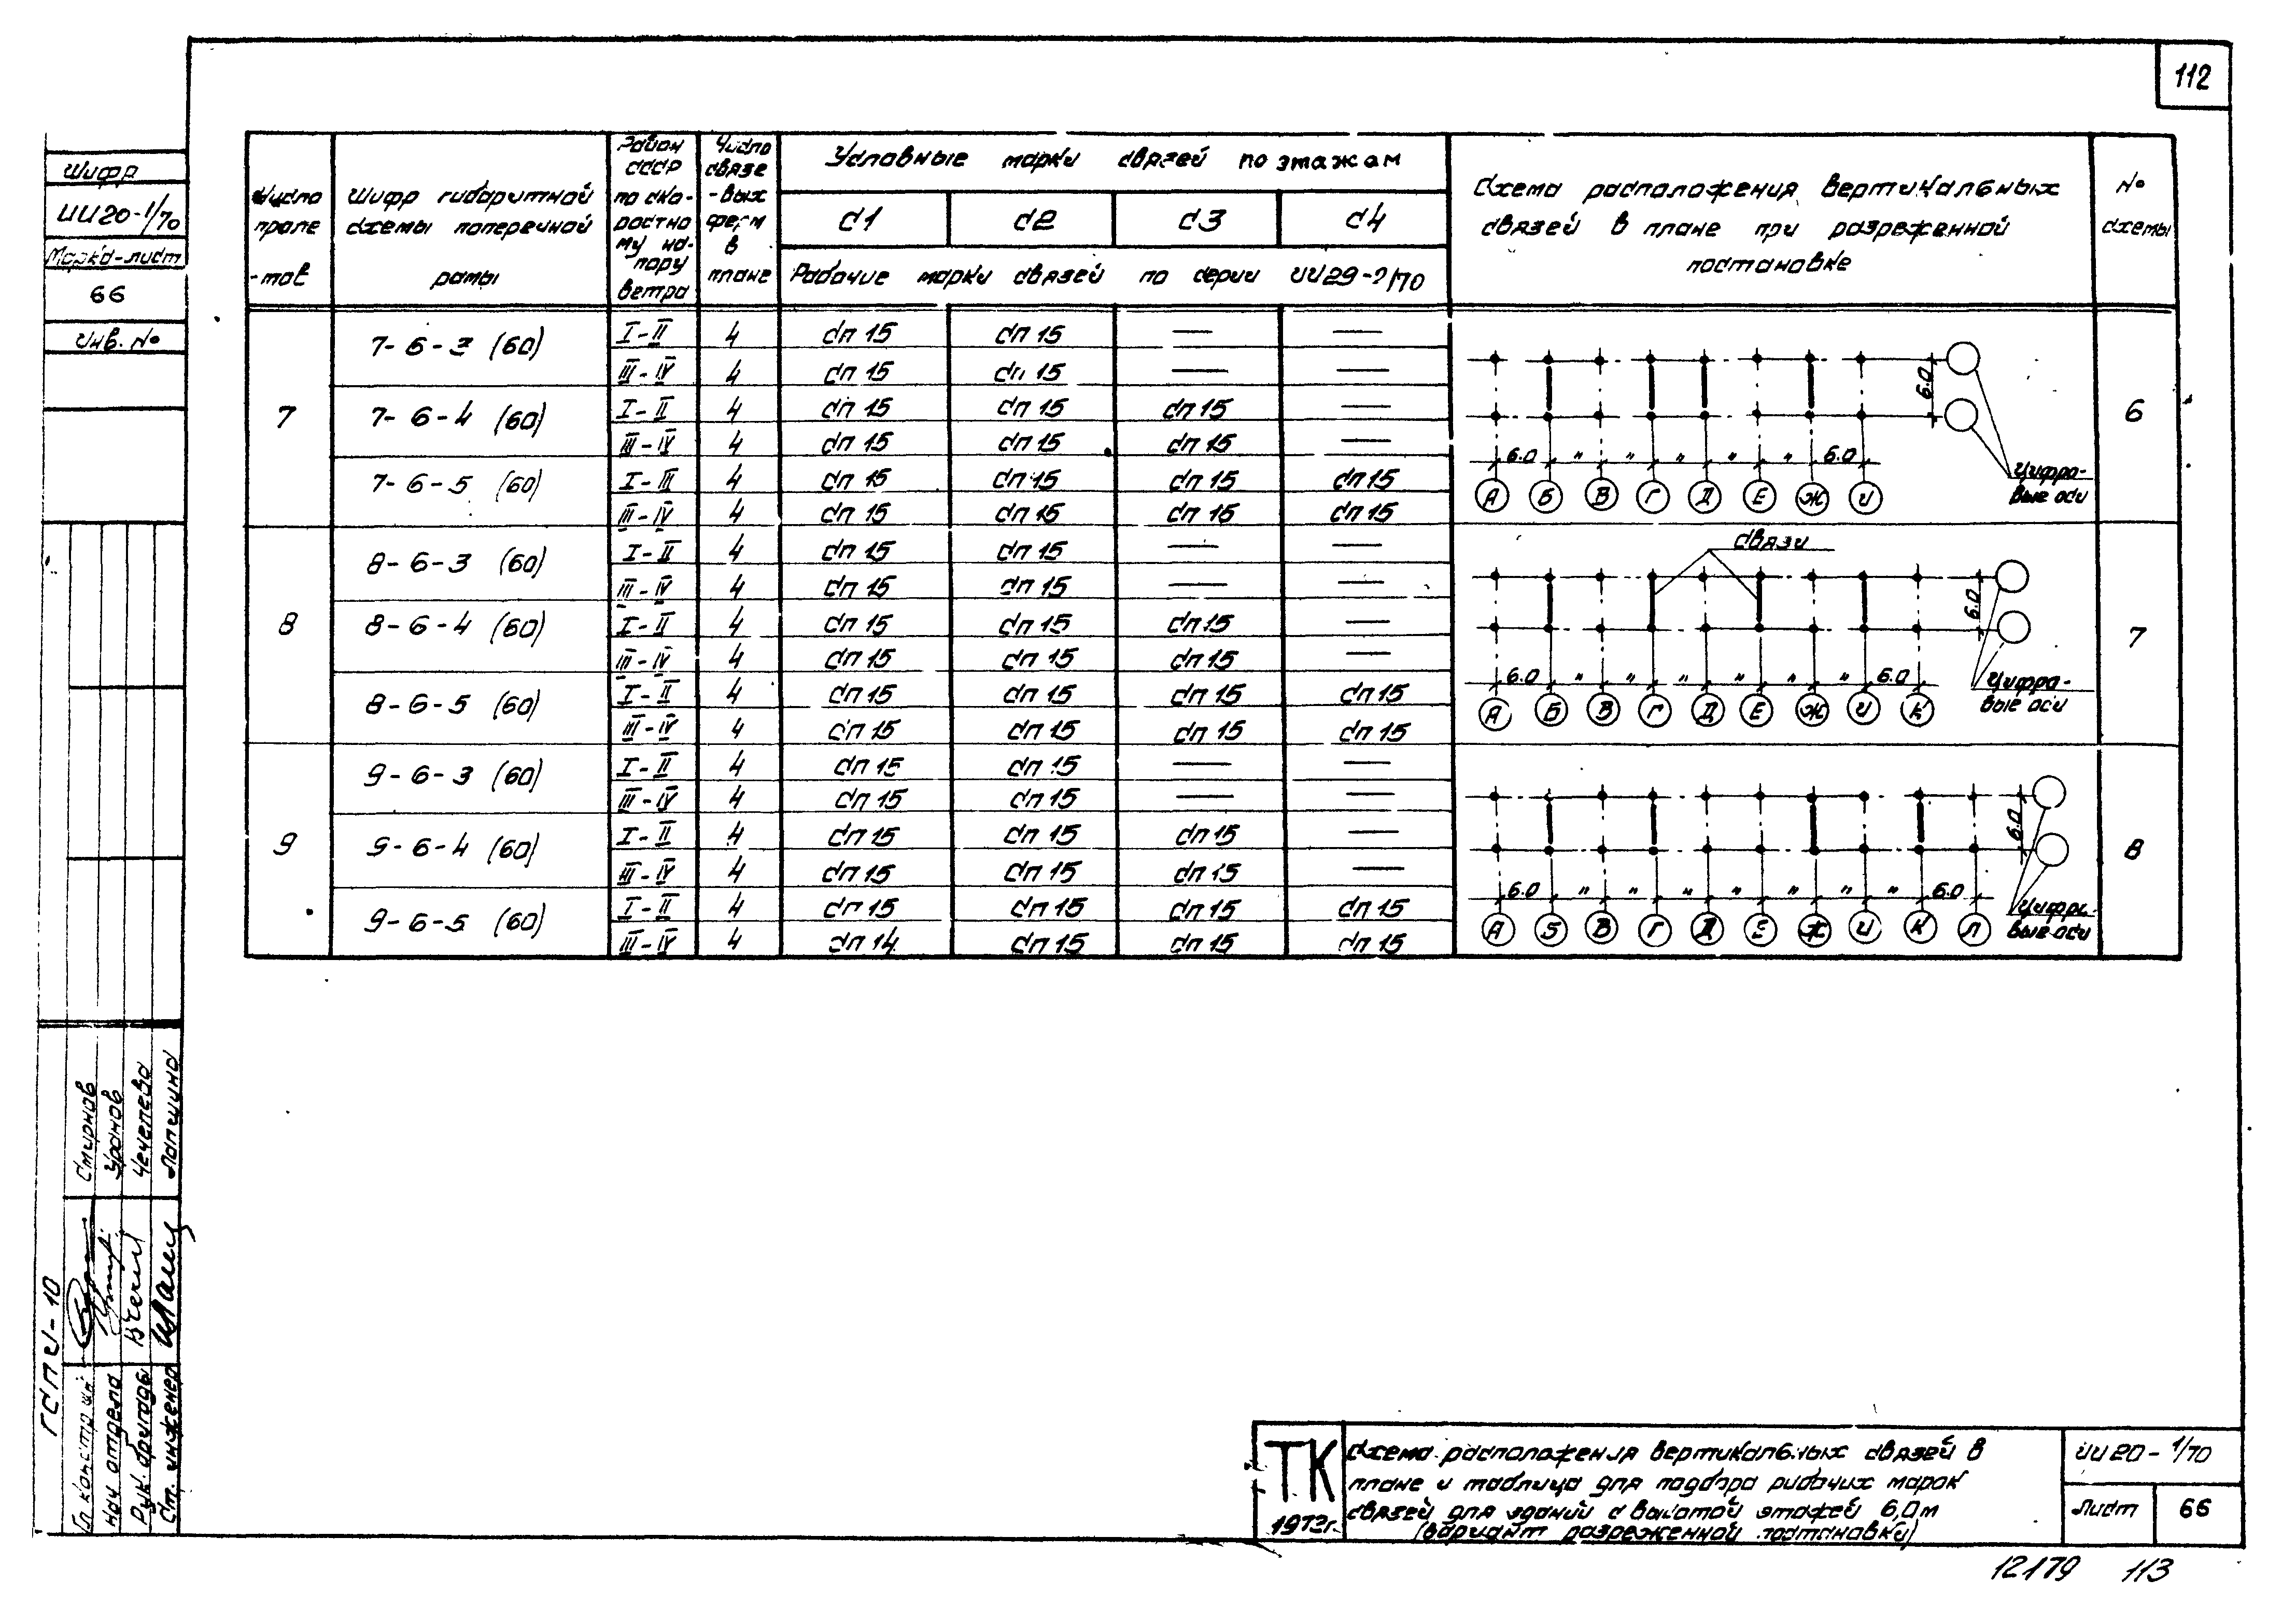 112
Шифр
ИИ20-1/70
Марка-лист
66
Инв. №
Число проле-тов
Шифр габаритной схемы поперечной рамы
Район СССР по ско-ростно му на-пору ветра
Число связе-вых ферм в плане
Условные марки связей по этажам
С1 С2 С3 С4
Рабочие марки связей по серии ИИ29-2/70
Схема расположения вертикальных связей в плане при разреженной постановке
№ схемы
7
7-6-3 (60) I-II 4 СП 15 СП 15 — —
III-IV 4 СП 15 СП 15 — —
7-6-4 (60) I-II 4 СП 15 СП 15 СП 15 —
III-IV 4 СП 15 СП 15 СП 15 —
7-6-5 (60) I-III 4 СП 15 СП 15 СП 15 СП 15
III-IV 4 СП 15 СП 15 СП 15 СП 15
6.0 " " " " " 6.0
6.0
А Б В Г Д Е Ж И
Цифро-
вые оси
6
8
8-6-3 (60) I-II 4 СП 15 СП 15 — —
III-IV 4 СП 15 СП 15 — —
8-6-4 (60) I-II 4 СП 15 СП 15 СП 15 —
III-IV 4 СП 15 СП 15 СП 15 —
8-6-5 (60) I-II 4 СП 15 СП 15 СП 15 СП 15
III-IV 4 СП 15 СП 15 СП 15 СП 15
Связи
6.0
6.0 " " " " " " 6.0
А Б В Г Д Е Ж И К
Цифро-
вые оси
7
9
9-6-3 (60) I-II 4 СП 15 СП 15 — —
III-IV 4 СП 15 СП 15 — —
9-6-4 (60) I-II 4 СП 15 СП 15 СП 15 —
III-IV 4 СП 15 СП 15 СП 15 —
9-6-5 (60) I-II 4 СП 15 СП 15 СП 15 СП 15
III-IV 4 СП 14 СП 15 СП 15 СП 15
6.0
6.0 " " " " " " " 6.0
А Б В Г Д Е Ж И К Л
Цифро-
вые оси
8
ГСПИ-10
Гл. констр. ин. Смирнов
Нач отдела Уранов
Рук. бригады Чечелева
Ст. инженер Лапшина
ТК
1972г.
Схема расположения вертикальных связей в
плане и таблица для подбора рабочих марок
связей для зданий с высотой этажей 6,0м
(вариант разреженной постановки)
ИИ20-1/70
Лист 66
12179 113